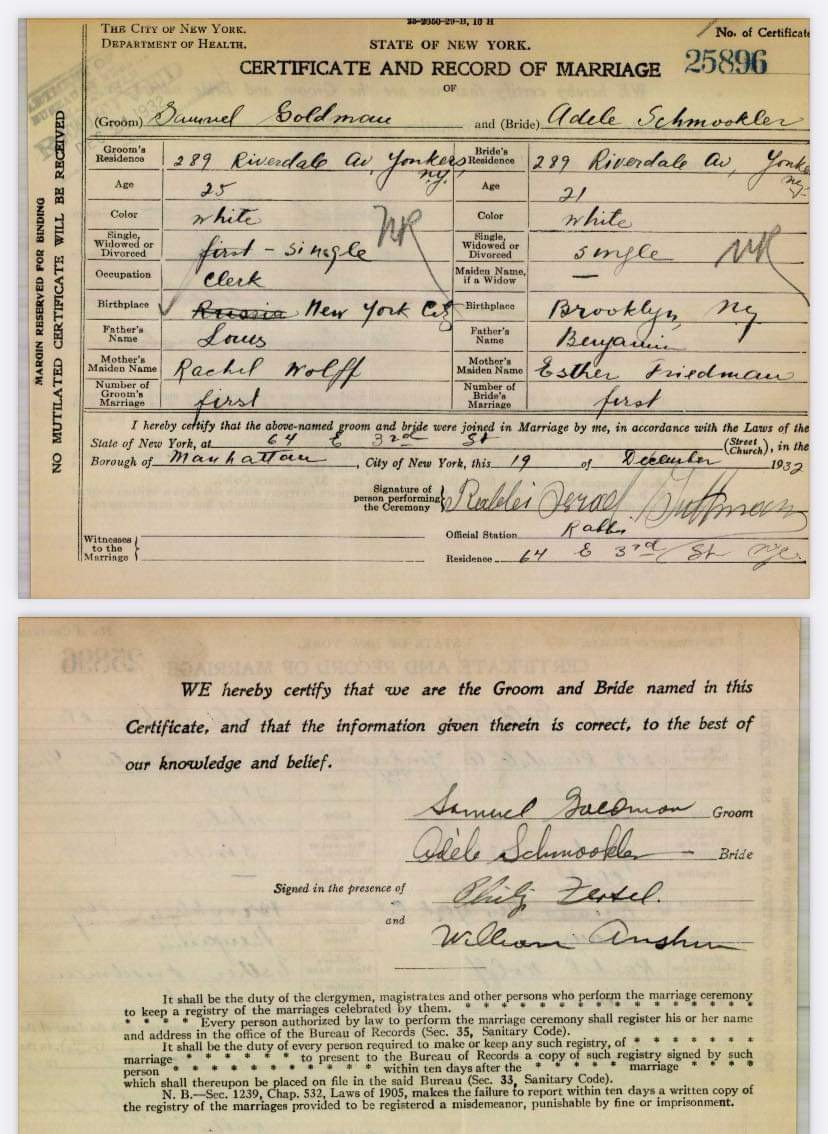 25-2050-29-B, 10 H
THE CITY OF NEW YORK.
DEPARTMENT OF HEALTH.
STATE OF NEW YORK.
No. of Certificate
CERTIFICATE AND RECORD OF MARRIAGE
25896
OF
(Groom) Samuel Goldman and (Bride) Adele Schmookler
Groom's Residence 289 Riverdale Av, Yonkers N.Y. Bride's Residence 289 Riverdale Av, Yonke N.Y.
Age 25 Age 21
Color white Color white
Single, Widowed or Divorced first - single NR Single, Widowed or Divorced single NR
Occupation Clerk Maiden Name, if a Widow —
Birthplace Russia New York City Birthplace Brooklyn, NY
Father's Name Louis Father's Name Benjamin
Mother's Maiden Name Rachel Wolff Mother's Maiden Name Esther Friedman
Number of Groom's Marriage first Number of Bride's Marriage first
I hereby certify that the above-named groom and bride were joined in Marriage by me, in accordance with the Laws of the
State of New York, at 64 E 3rd St (Street Church), in the
Borough of Manhattan, City of New York, this 19 of December 1932
Signature of person performing the Ceremony } Rabbi
Official Station Rabbi
Witnesses to the Marriage }
Residence 64 E 3rd St NYC
MARGIN RESERVED FOR BINDING
NO MUTILATED CERTIFICATE WILL BE RECEIVED
WE hereby certify that we are the Groom and Bride named in this
Certificate, and that the information given therein is correct, to the best of
our knowledge and belief.
Samuel Goldman Groom
Adèle Schmookler — Bride
Signed in the presence of
and
William
It shall be the duty of the clergymen, magistrates and other persons who perform the marriage ceremony
to keep a registry of the marriages celebrated by them. * * * * * * * * * * * * * * *
* * * * Every person authorized by law to perform the marriage ceremony shall register his or her name
and address in the office of the Bureau of Records (Sec. 35, Sanitary Code).
It shall be the duty of every person required to make or keep any such registry, of * * * * * * *
marriage * * * * * * to present to the Bureau of Records a copy of such registry signed by such
person * * * * * * * * * * within ten days after the * * * * * marriage * * * *
which shall thereupon be placed on file in the said Bureau (Sec. 33, Sanitary Code).
N. B.—Sec. 1239, Chap. 532, Laws of 1905, makes the failure to report within ten days a written copy of
the registry of the marriages provided to be registered a misdemeanor, punishable by fine or imprisonment.